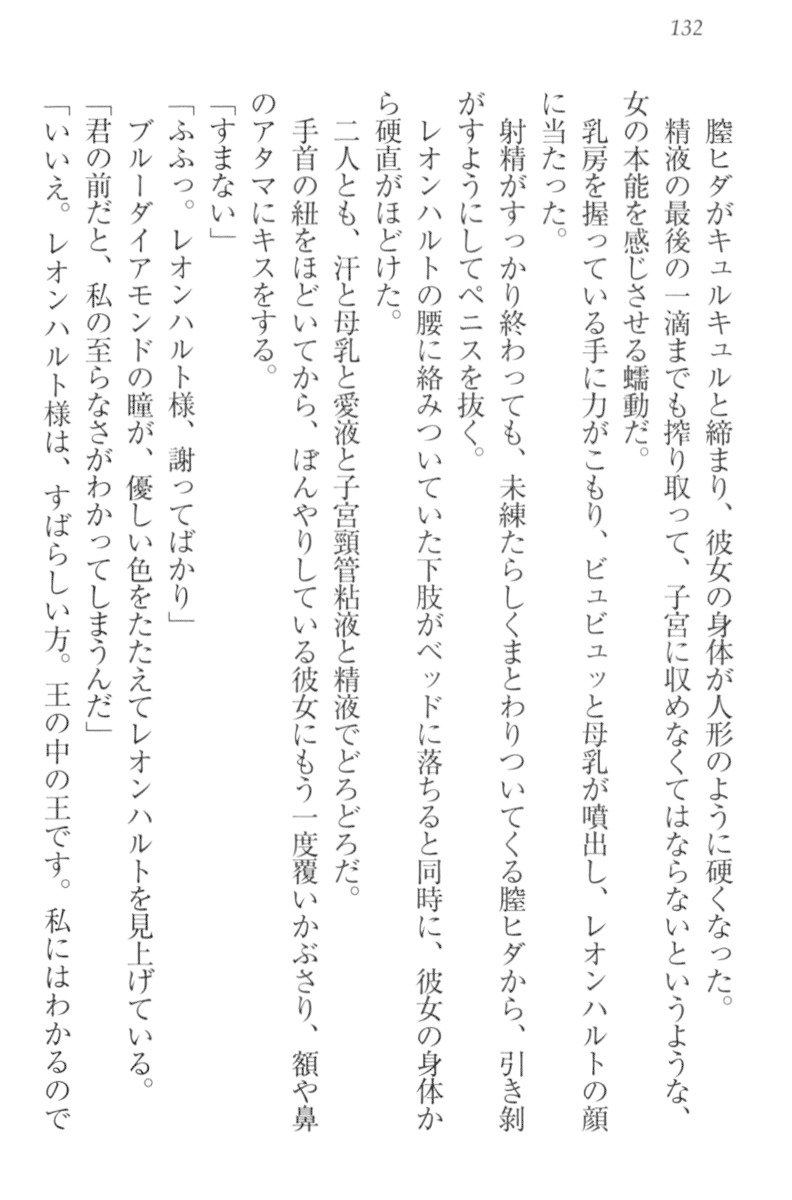 132
膣ヒダがキュルキュルと締まり、彼女の身体が人形のように硬くなった。
精液の最後の一滴までも搾り取って、子宮に収めなくてはならないというような、
女の本能を感じさせる蠕動だ。
乳房を握っている手に力がこもり、ビュビュッと母乳が噴出し、レオンハルトの顔
に当たった。
射精がすっかり終わっても、未練たらしくまとわりついてくる膣ヒダから、引き剝
がすようにしてペニスを抜く。
レオンハルトの腰に絡みついていた下肢がベッドに落ちると同時に、彼女の身体か
ら硬直がほどけた。
二人とも、汗と母乳と愛液と子宮頸管粘液と精液でどろどろだ。
手首の紐をほどいてから、ぼんやりしている彼女にもう一度覆いかぶさり、額や鼻
のアタマにキスをする。
「すまない」
「ふふっ。レオンハルト様、謝ってばかり」
ブルーダイアモンドの瞳が、優しい色をたたえてレオンハルトを見上げている。
「君の前だと、私の至らなさがわかってしまうんだ」
「いいえ。レオンハルト様は、すばらしい方。王の中の王です。私にはわかるので